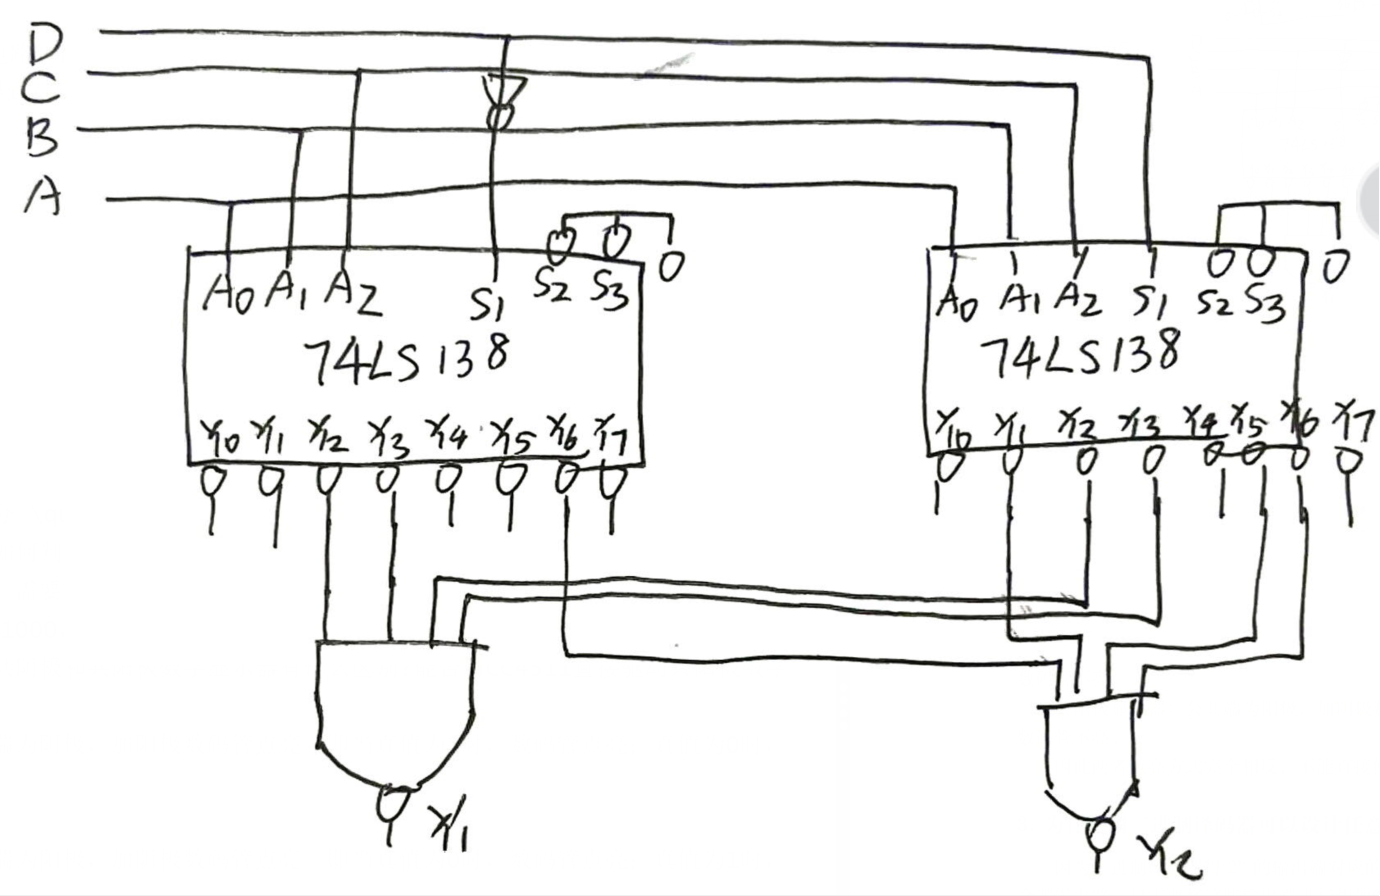 D
C
B
A
A0 A1 A2 S1 S2 S3 0
74LS138
Y0 Y1 Y2 Y3 Y4 Y5 Y6 Y7
A0 A1 A2 S1 S2 S3 0
74LS138
Y0 Y1 Y2 Y3 Y4 Y5 Y6 Y7
Y1
Y2